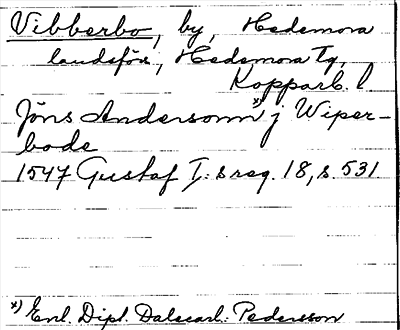 Vibberbo, by, Hedemora
landsförs, Hedemora tg,
Kopparb. l
Jöns Andersonn*) j Wiper-
bode
1547 Gustaf I:s reg. 18, s. 531
*) Enl. Dipl. Dalecarl: Pedersson